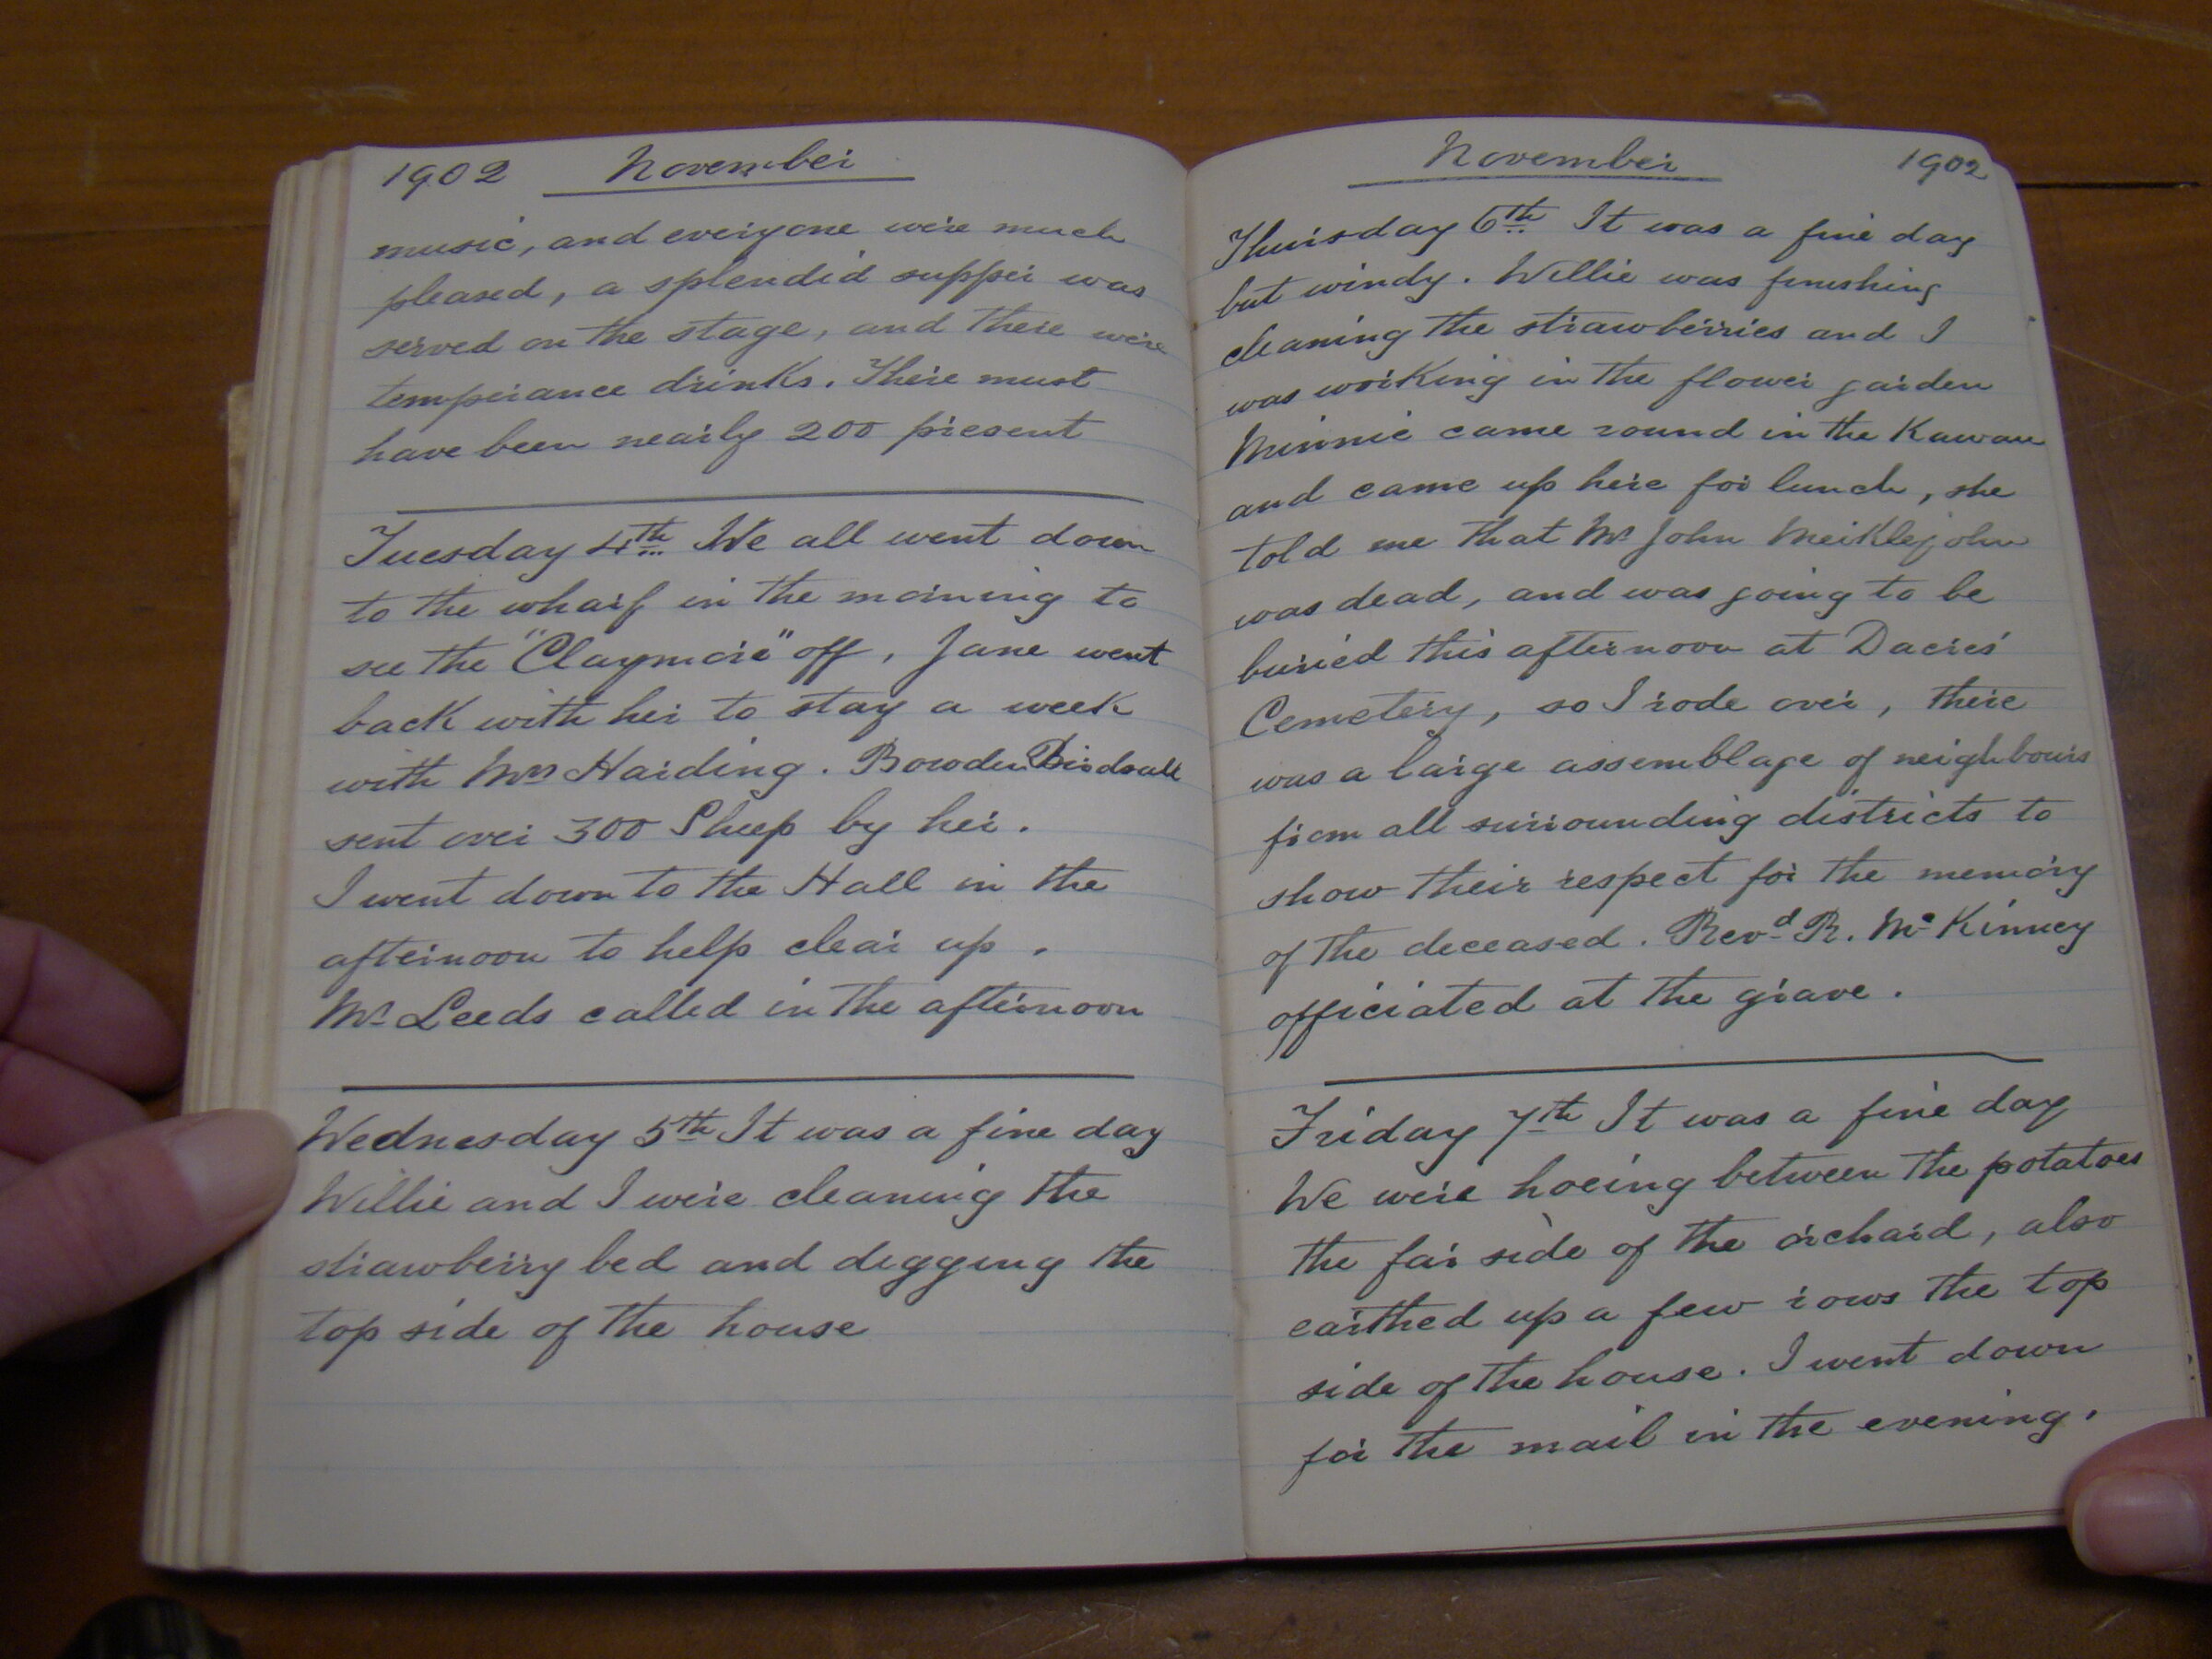 1902 November
music, and everyone were much
pleased, a splendid supper was
served on the stage, and there were
temperance drinks. There must
have been nearly 200 present
Tuesday 4th We all went down
to the wharf in the morning to
see the "Claymore" off, Jane went
back with her to stay a week
with Mrs Harding. Bowden Birdsall
sent over 300 Sheep by her.
I went down to the Hall in the
afternoon to help clear up.
Mr Leeds called in the afternoon
Wednesday 5th It was a fine day
Willie and I were cleaning the
strawberry bed and digging the
top side of the house
November 1902
Thursday 6th It was a fine day
but windy. Willie was finishing
cleaning the strawberries and I
was working in the flower garden
Minnie came round in the Kawau
and came up here for lunch, she
told me that Mr John Meiklejohn
was dead, and was going to be
buried this afternoon at Dacres'
Cemetery, so I rode over, there
was a large assemblage of neighbours
from all surrounding districts to
show their respect for the memory
of the deceased. Revd R. McKinney
officiated at the grave.
Friday 7th It was a fine day
We were hoeing between the potatoes
the far side of the orchard, also
earthed up a few rows the top
side of the house. I went down
for the mail in the evening.